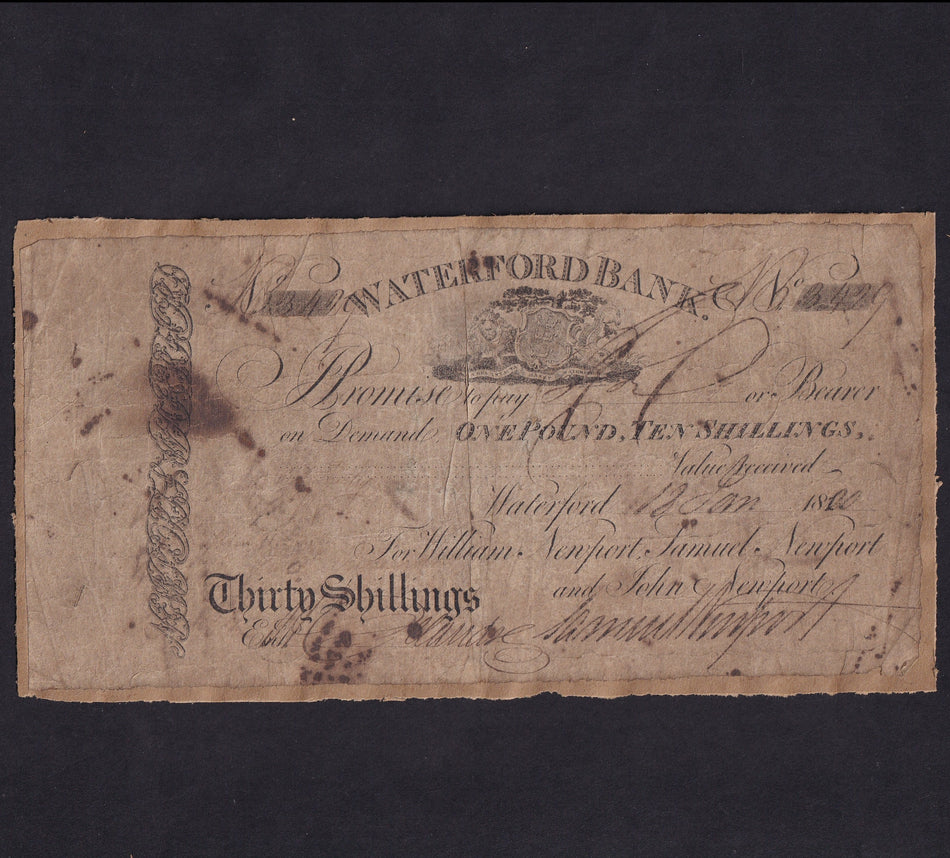 WATERFORD BANK.
No 3429 No 3429
I Promise to pay or Bearer
on Demand ONE POUND, TEN SHILLINGS,
Value Received
Waterford 18 Jan 18
For William Newport, Samuel Newport
and John Newport
Thirty Shillings
Entd Samuel Newport